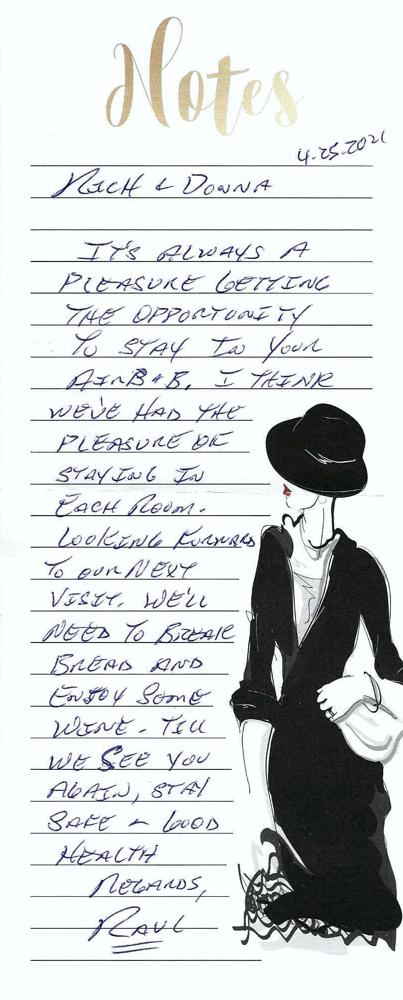 Notes
4-25-2021
RICH & DONNA
IT'S ALWAYS A
PLEASURE GETTING
THE OPPORTUNITY
TO STAY IN YOUR
AIRB+B. I THINK
WE'VE HAD THE
PLEASURE OF
STAYING IN
EACH ROOM.
LOOKING FORWARD
TO OUR NEXT
VISIT. WE'LL
NEED TO BREAK
BREAD AND
ENJOY SOME
WINE. TILL
WE SEE YOU
AGAIN, STAY
SAFE & GOOD
HEALTH
REGARDS,
RAUL